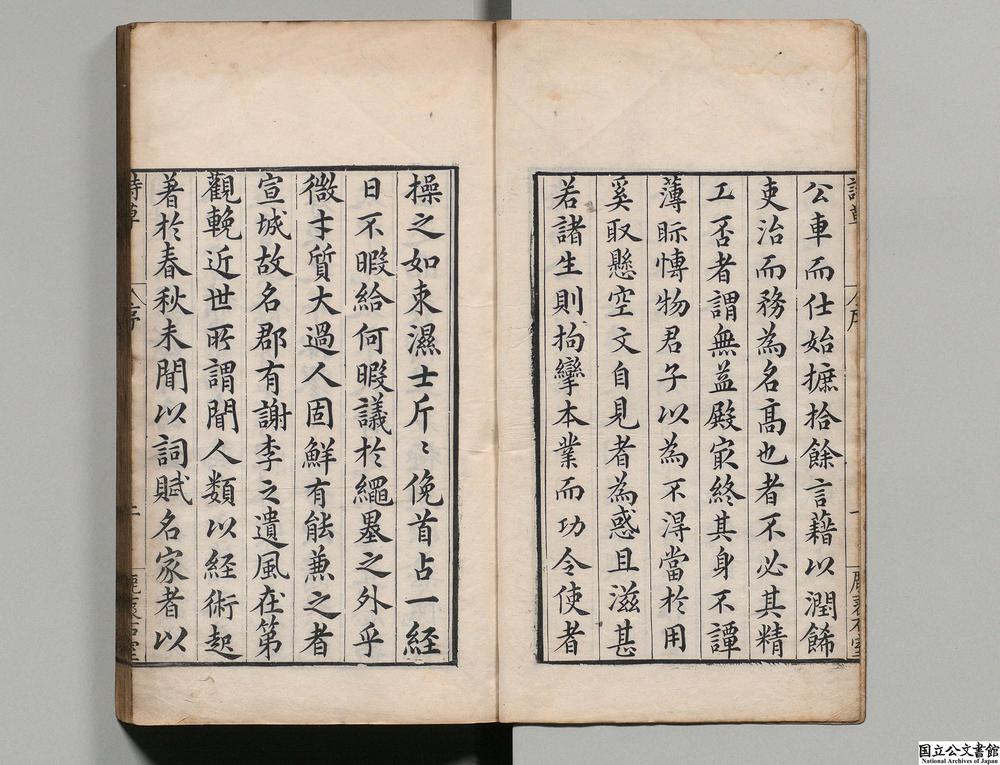 公車而仕始摭拾餘言藉以潤餙
吏治而務為名高也者不必其精
工否者謂無益殿㝡終其身不譚
薄眎愽物君子以為不淂當於用
奚取懸空文自見者為惑且滋甚
若諸生則拘攣本業而功令使者
操之如朿濕士斤〻俛首占一經
日不暇給何暇議於繩墨之外乎
微才質大過人固鮮有能兼之者
宣城故名郡有謝李之遺風在第
觀輓近世所謂聞人類以経術起
著於春秋未聞以詞賦名家者以
詩草
序
二
鹿裘石室
国立公文書館
National Archives of Japan